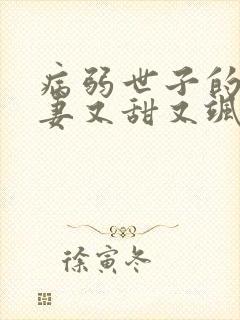 病弱世子的
妻又甜又飒
徐寅冬